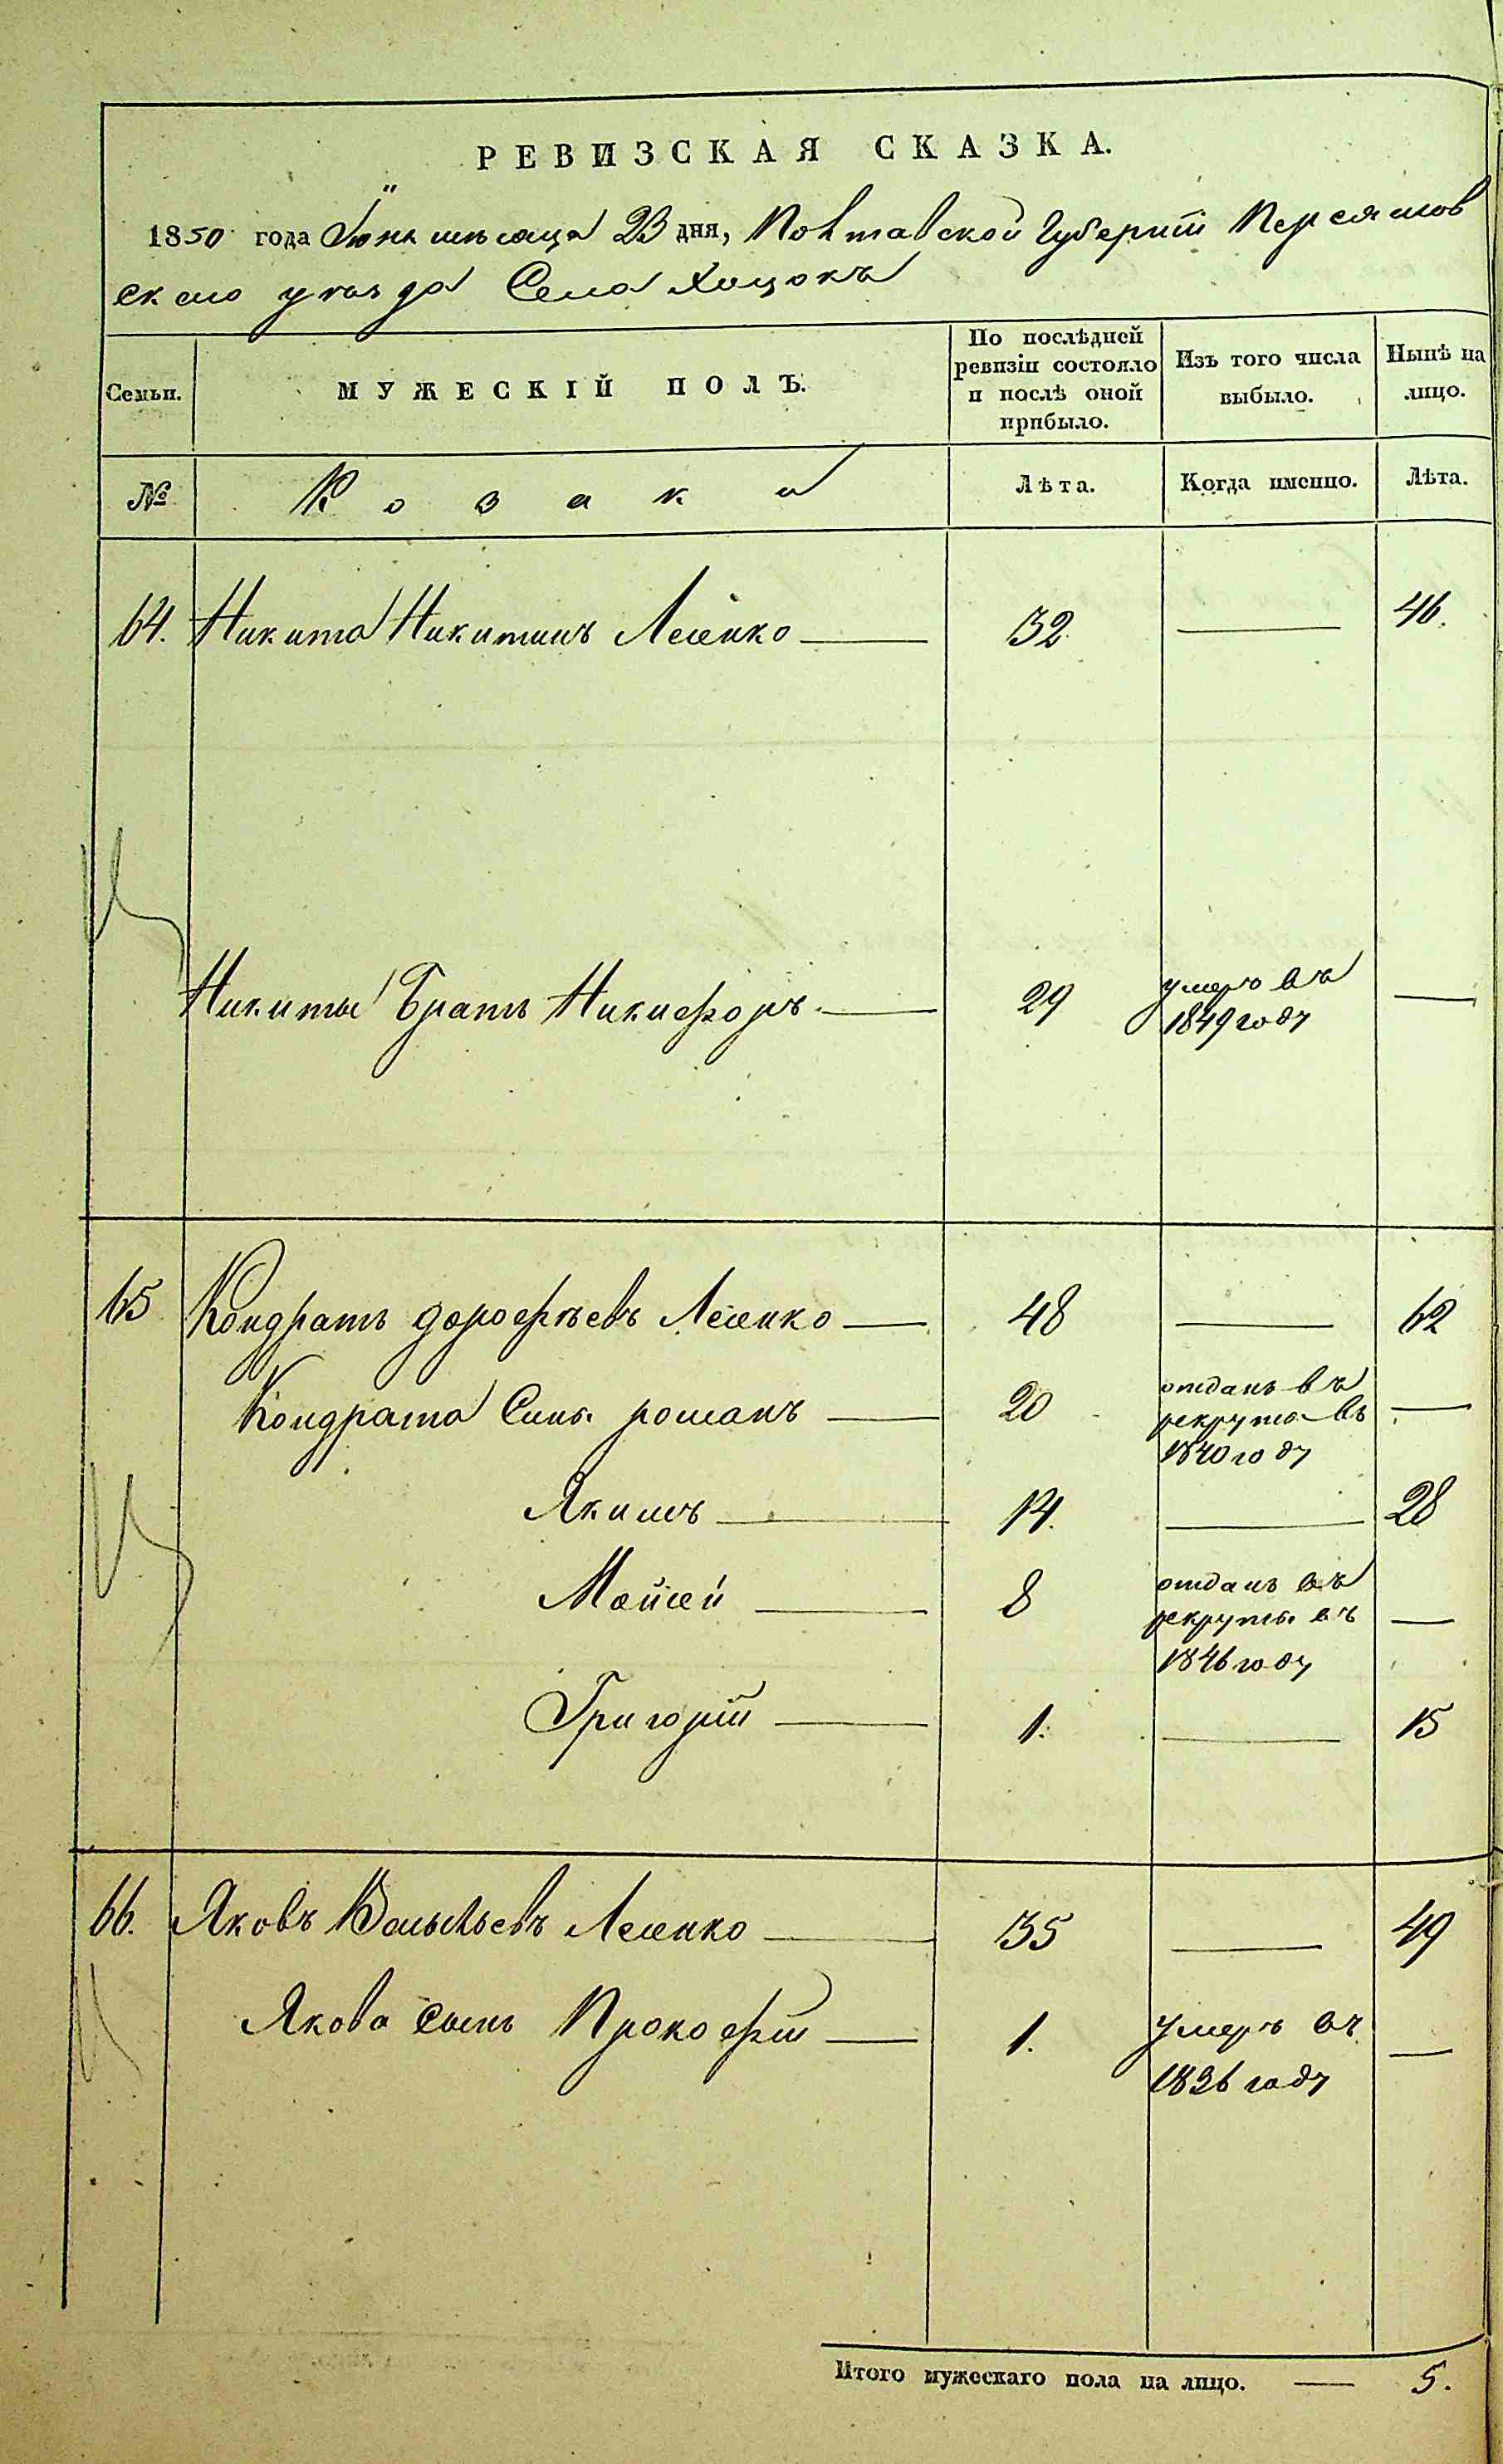 РЕВИЗСКАЯ СКАЗКА.
1850 года Іюня мѣсяца 23 дня, Полтавской Губерніи Переяслов
скаго уѣзда Села Хоцокъ
Семьи.
МУЖЕСКІЙ ПОЛЪ.
По послѣдней ревизіи состояло и послѣ оной прибыло.
Изъ того числа выбыло.
Нынѣ на лицо.
№ Козаки Лѣта. Когда именно. Лѣта.
64. Никита Никитинъ Лесенко — 32 — 46.
Никиты Братъ Никифоръ. — 29 умеръ въ 1849 году —
65 Кондратъ дорофѣевъ Лесенко — 48 — 62
Кондрата Синъ. романъ — 20 отданъ въ рекрута въ 1840 году —
Якимъ — 14. — 28
Мойсей — 8 отданъ въ рекруты въ 1846 году —
Григорій — 1. — 15
66. Яковъ Васильевъ Лесенко — 35 — 49
Якова сынъ Прокофій — 1. умеръ въ 1836 году —
Итого мужескаго пола на лицо. — 5.